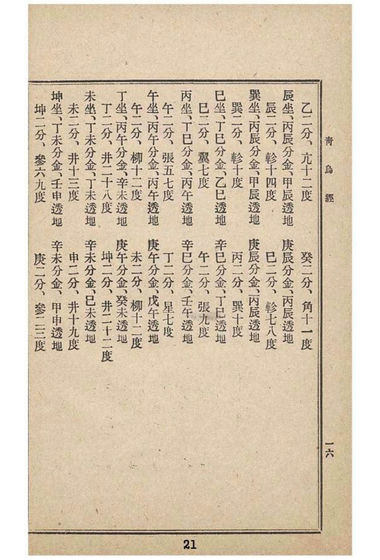 青烏經
一六
乙二分、亢十二度 癸二分、角十一度
辰坐、丙辰分金、甲辰透地 庚辰分金、丙辰透地
辰二分、軫十四度 巳二分、軫七八度
巽坐、丙辰分金、甲辰透地 庚辰分金、丙辰透地
巽二分、軫十度 丙二分、巽十度
巳坐、丁巳分金、乙巳透地 辛巳分金、丁巳透地
巳二分、翼七度 午二分、張九度
丙坐、丁巳分金、丙午透地 辛巳分金、壬午透地
午二分、張五七度 丁二分、星七度
午坐、丙午分金、丙午透地 庚午分金、戊午透地
丁二分、柳十二度 未二分、柳十二度
丁坐、丙午分金、辛未透地 庚午分金、癸未透地
丁二分、井二十八度 坤二分、井二十二度
未坐、丁未分金、丁未透地 辛未分金、巳未透地
未二分、井十三度 申二分、井十九度
坤坐、丁未分金、壬申透地 辛未分金、甲申透地
坤二分、參六九度 庚二分、參二三度
21